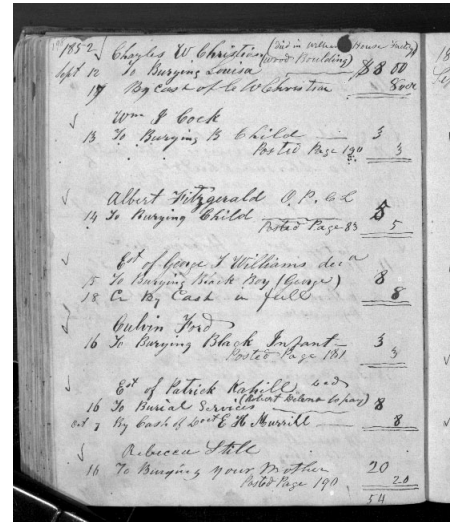 1852 Charles W Christian (Died in House Factory)
(Wood Boulding)
Sept 12 To Burying Louisa $8 00
17 By cash of C W Christian 8 00
Wm J Cock
13 To Burying B Child 3
Posted Page 190 3
Albert Fitzgerald O. P.
14 To Burying Child 5
Posted Page 83 5
Est of George T Williams decd
15 To Burying Black Boy (George) 8
18 Cr By Cash in full 8
Calvin Ford
16 To Burying Black Infant 3
Posted Page 181 3
Est of Patrick Kahill decd
(Albert to pay)
16 To Burial Services 8
Oct 7 By Cash of E H Murrill 8
Rebecca Still
16 To Burying your Mother 20
Posted Page 190 20
54